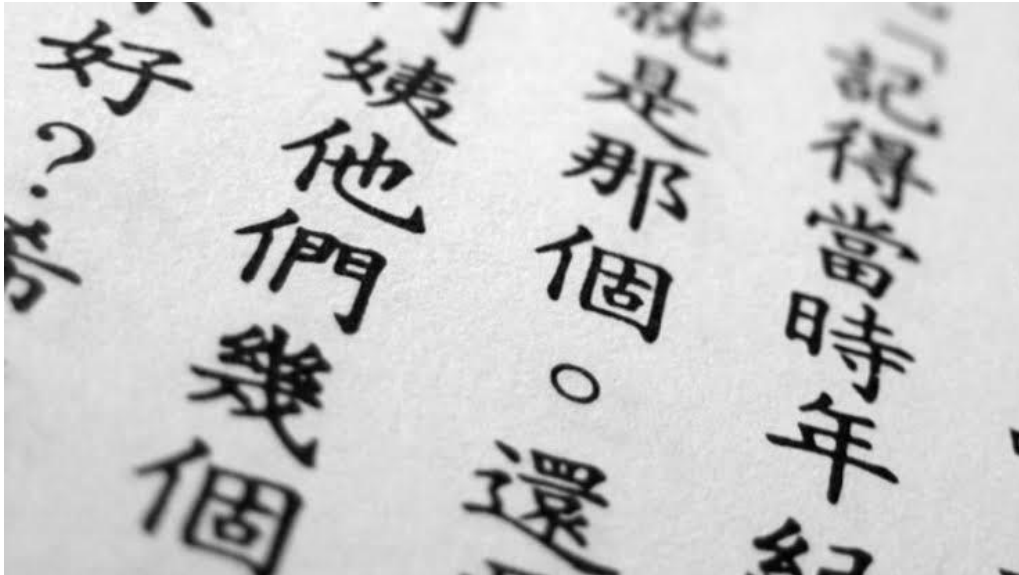 「記得當時年紀
就是那個。還
阿姨他們幾個
好?